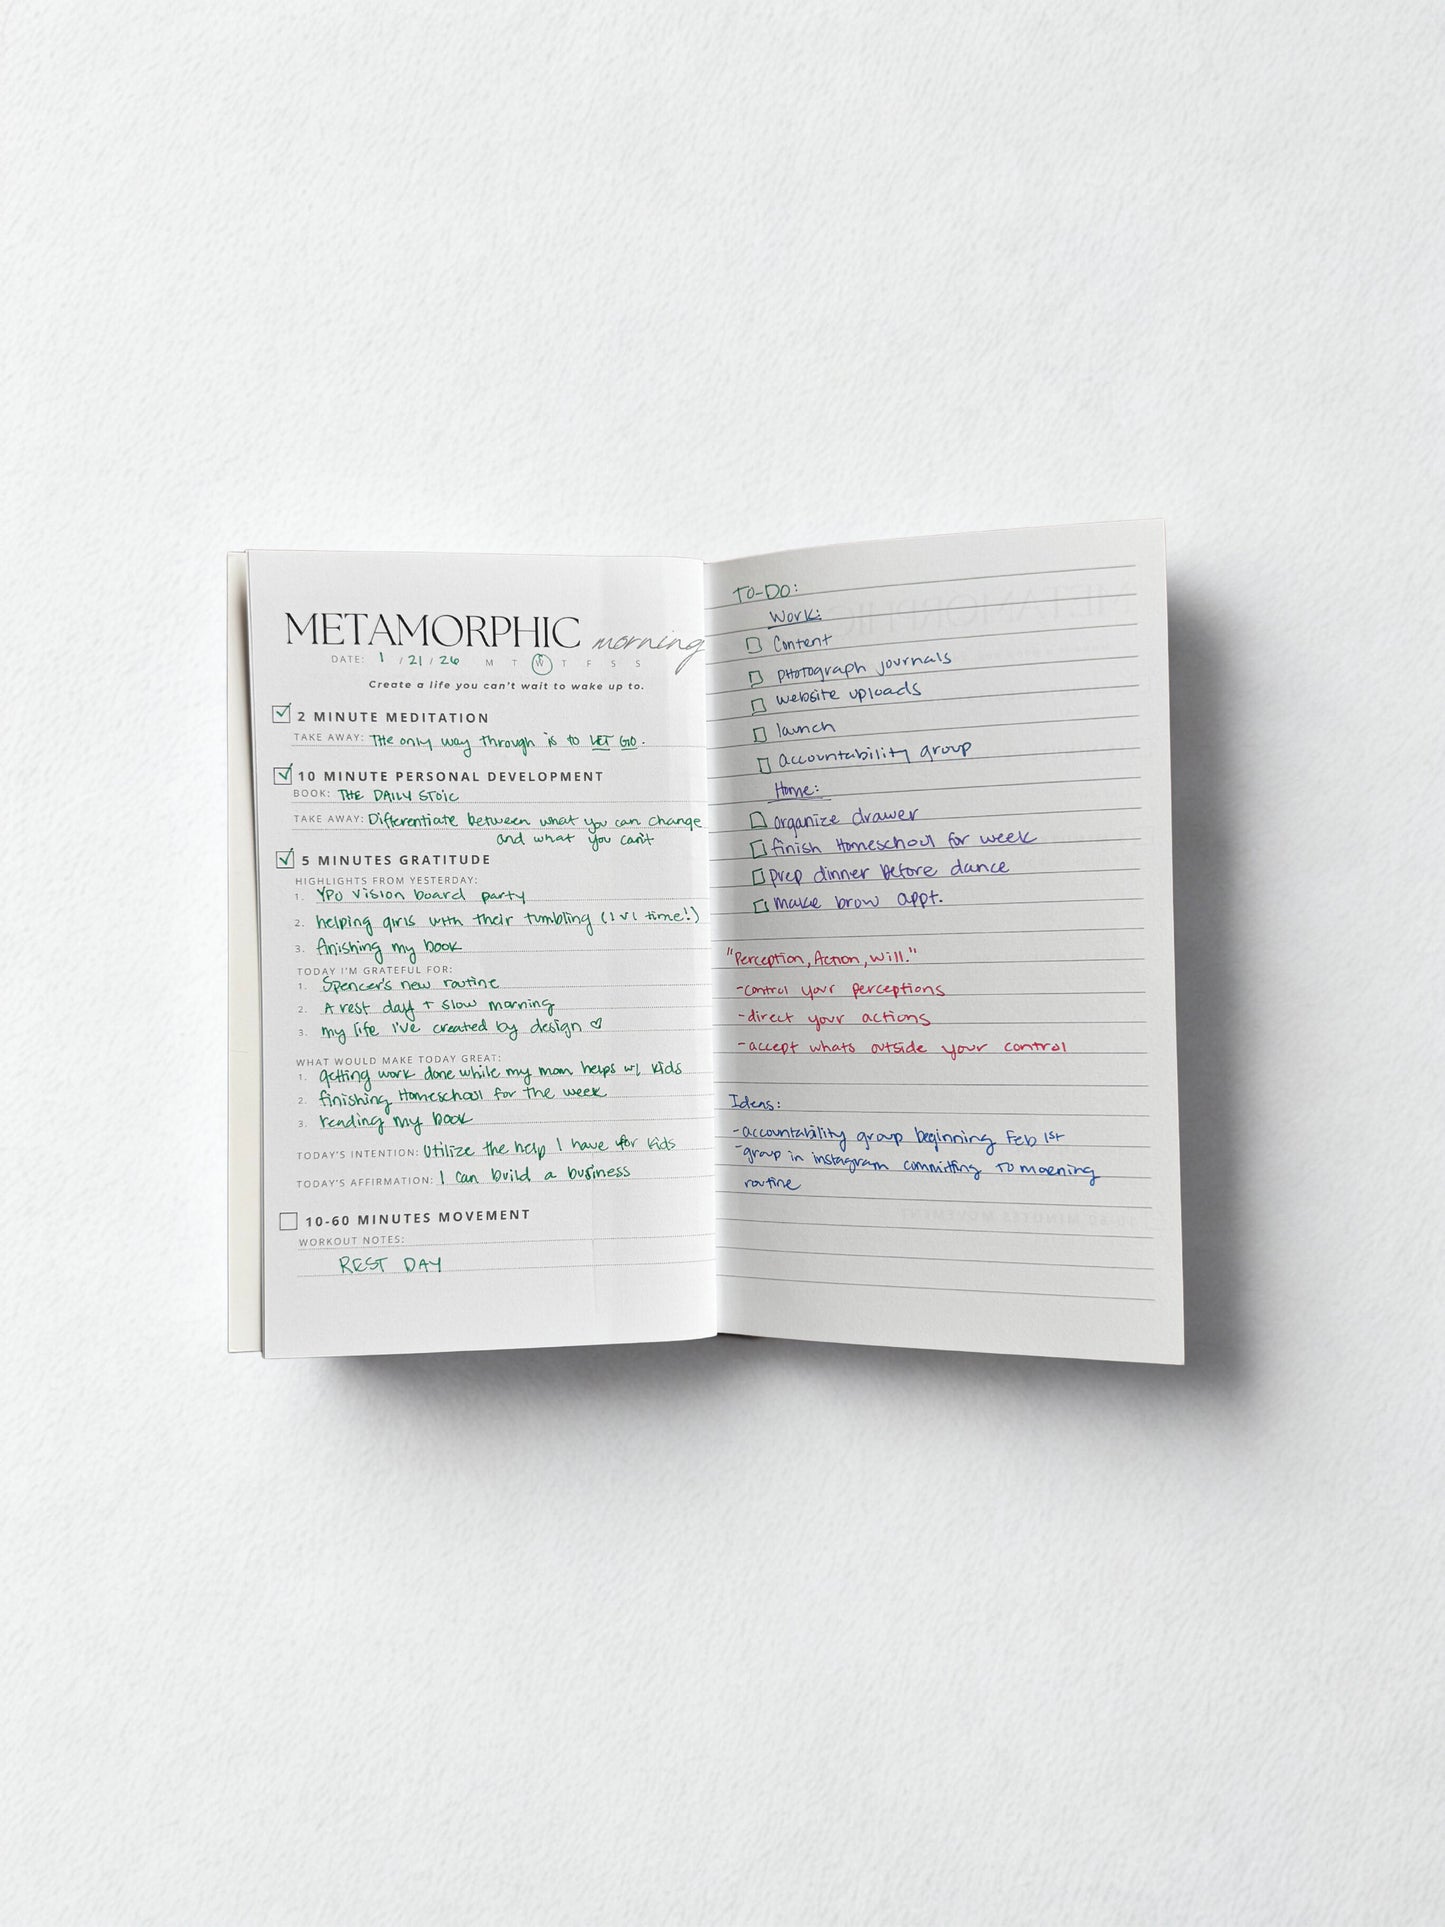 METAMORPHIC morning
DATE: 1 / 21 / 26 M T W T F S S
Create a life you can't wait to wake up to.
2 MINUTE MEDITATION
TAKE AWAY: The only way through is to LET GO.
10 MINUTE PERSONAL DEVELOPMENT
BOOK: THE DAILY STOIC
TAKE AWAY: Differentiate between what you can change
and what you can't
5 MINUTES GRATITUDE
HIGHLIGHTS FROM YESTERDAY:
1. YPO vision board party
2. helping girls with their tumbling (1v1 time!)
3. finishing my book
TODAY I'M GRATEFUL FOR:
1. Spencer's new routine
2. A rest day + slow morning
3. my life I've created by design ♡
WHAT WOULD MAKE TODAY GREAT:
1. getting work done while my mom helps w/ kids
2. finishing Homeschool for the week
3. reading my book
TODAY'S INTENTION: Utilize the help I have for kids
TODAY'S AFFIRMATION: I can build a business
10-60 MINUTES MOVEMENT
WORKOUT NOTES:
REST DAY
TO-DO:
Work:
Content
photograph journals
website uploads
launch
accountability group
Home:
organize drawer
finish Homeschool for week
prep dinner before dance
make brow appt.
"Perception, Action, Will."
-control your perceptions
-direct your actions
-accept whats outside your control
Ideas:
-accountability group beginning Feb 1st
-group in instagram committing to morning
routine